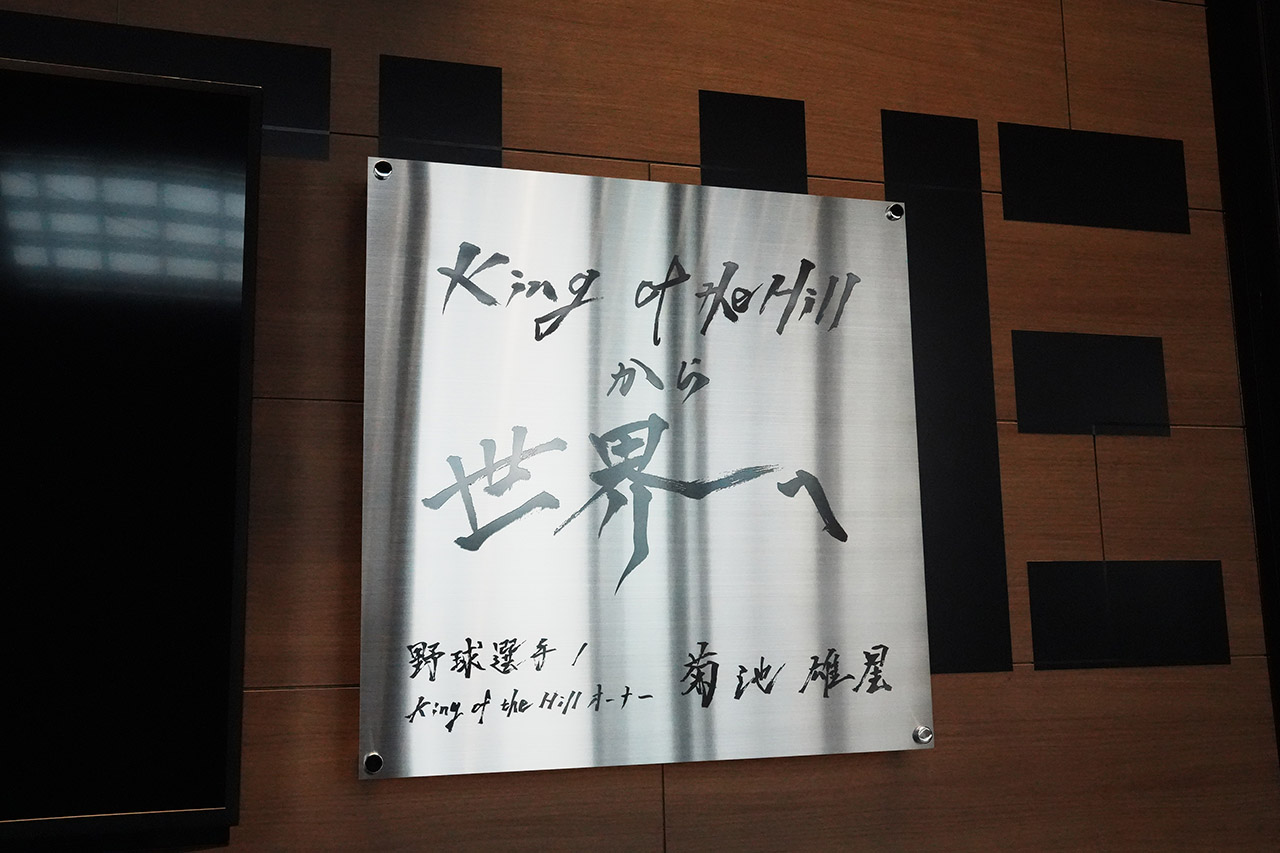 King of the Hill
から
世界一へ
野球選手/
King of the Hill オーナー
菊池 雄星